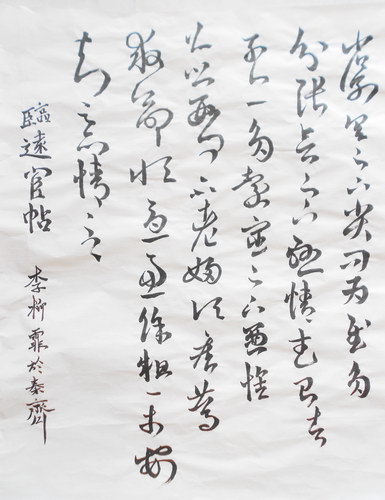 省別具足下小大問為慰多
分張念足下懸情武昌諸
子亦多遠宦足下兼懷
並數問不老婦頃疾篤
救命恒憂慮餘粗平安
知足下情至
臨遠宦帖
李柳霏於泰齋